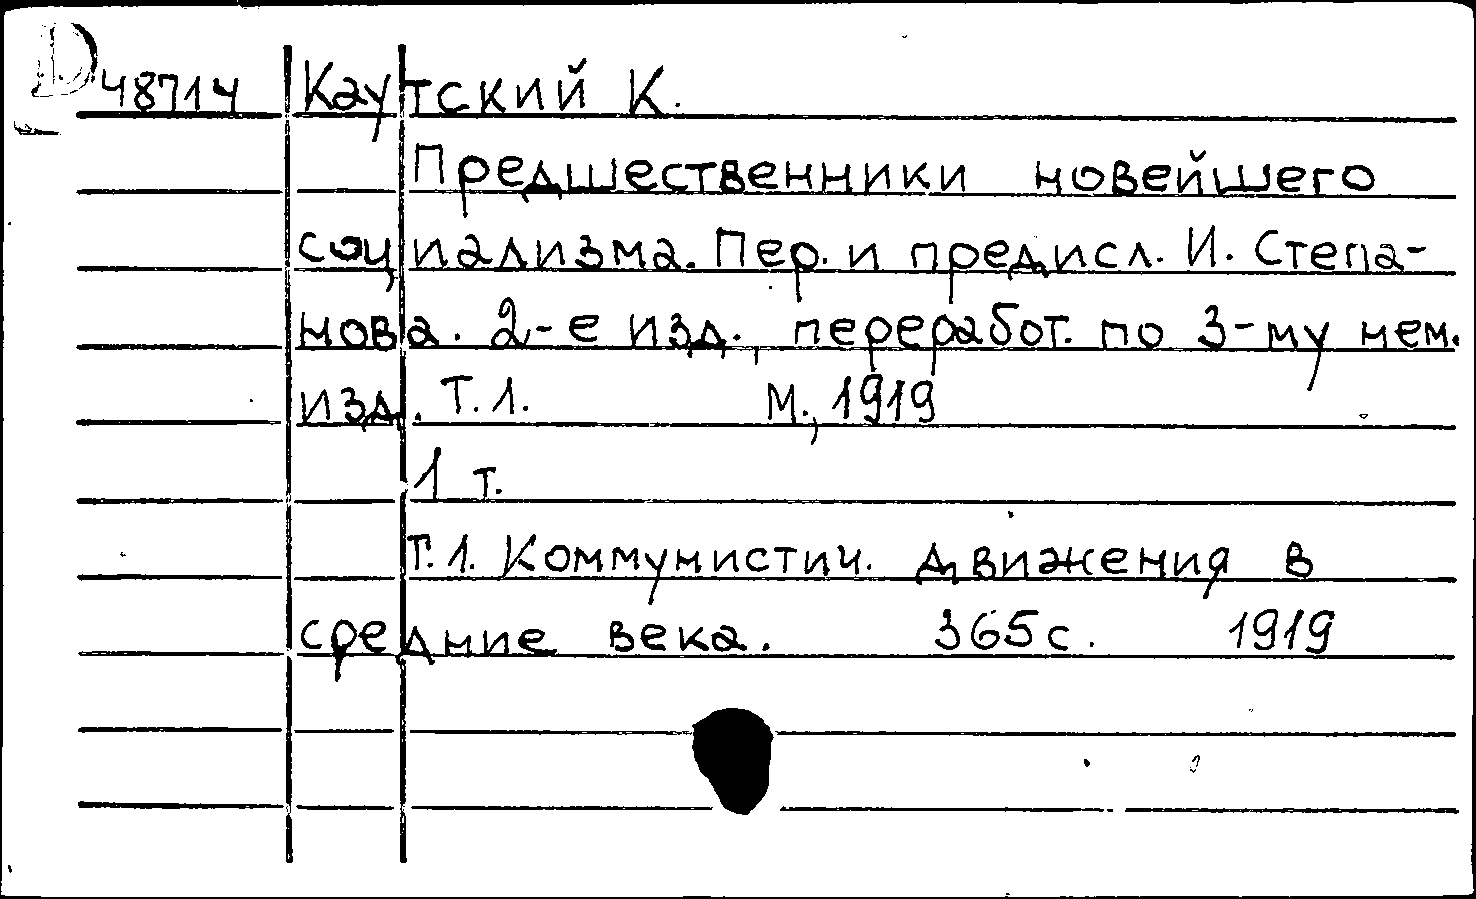 D 48714 Каутский К.
Предшественники новейшего
социализма. Пер. и предисл. И. Степа-
нова. 2-е изд., переработ. по 3-му нем.
изд. Т. 1. М., 1919
1 т.
Т. 1. Коммунистич. движения в
средние века. 365 с. 1919